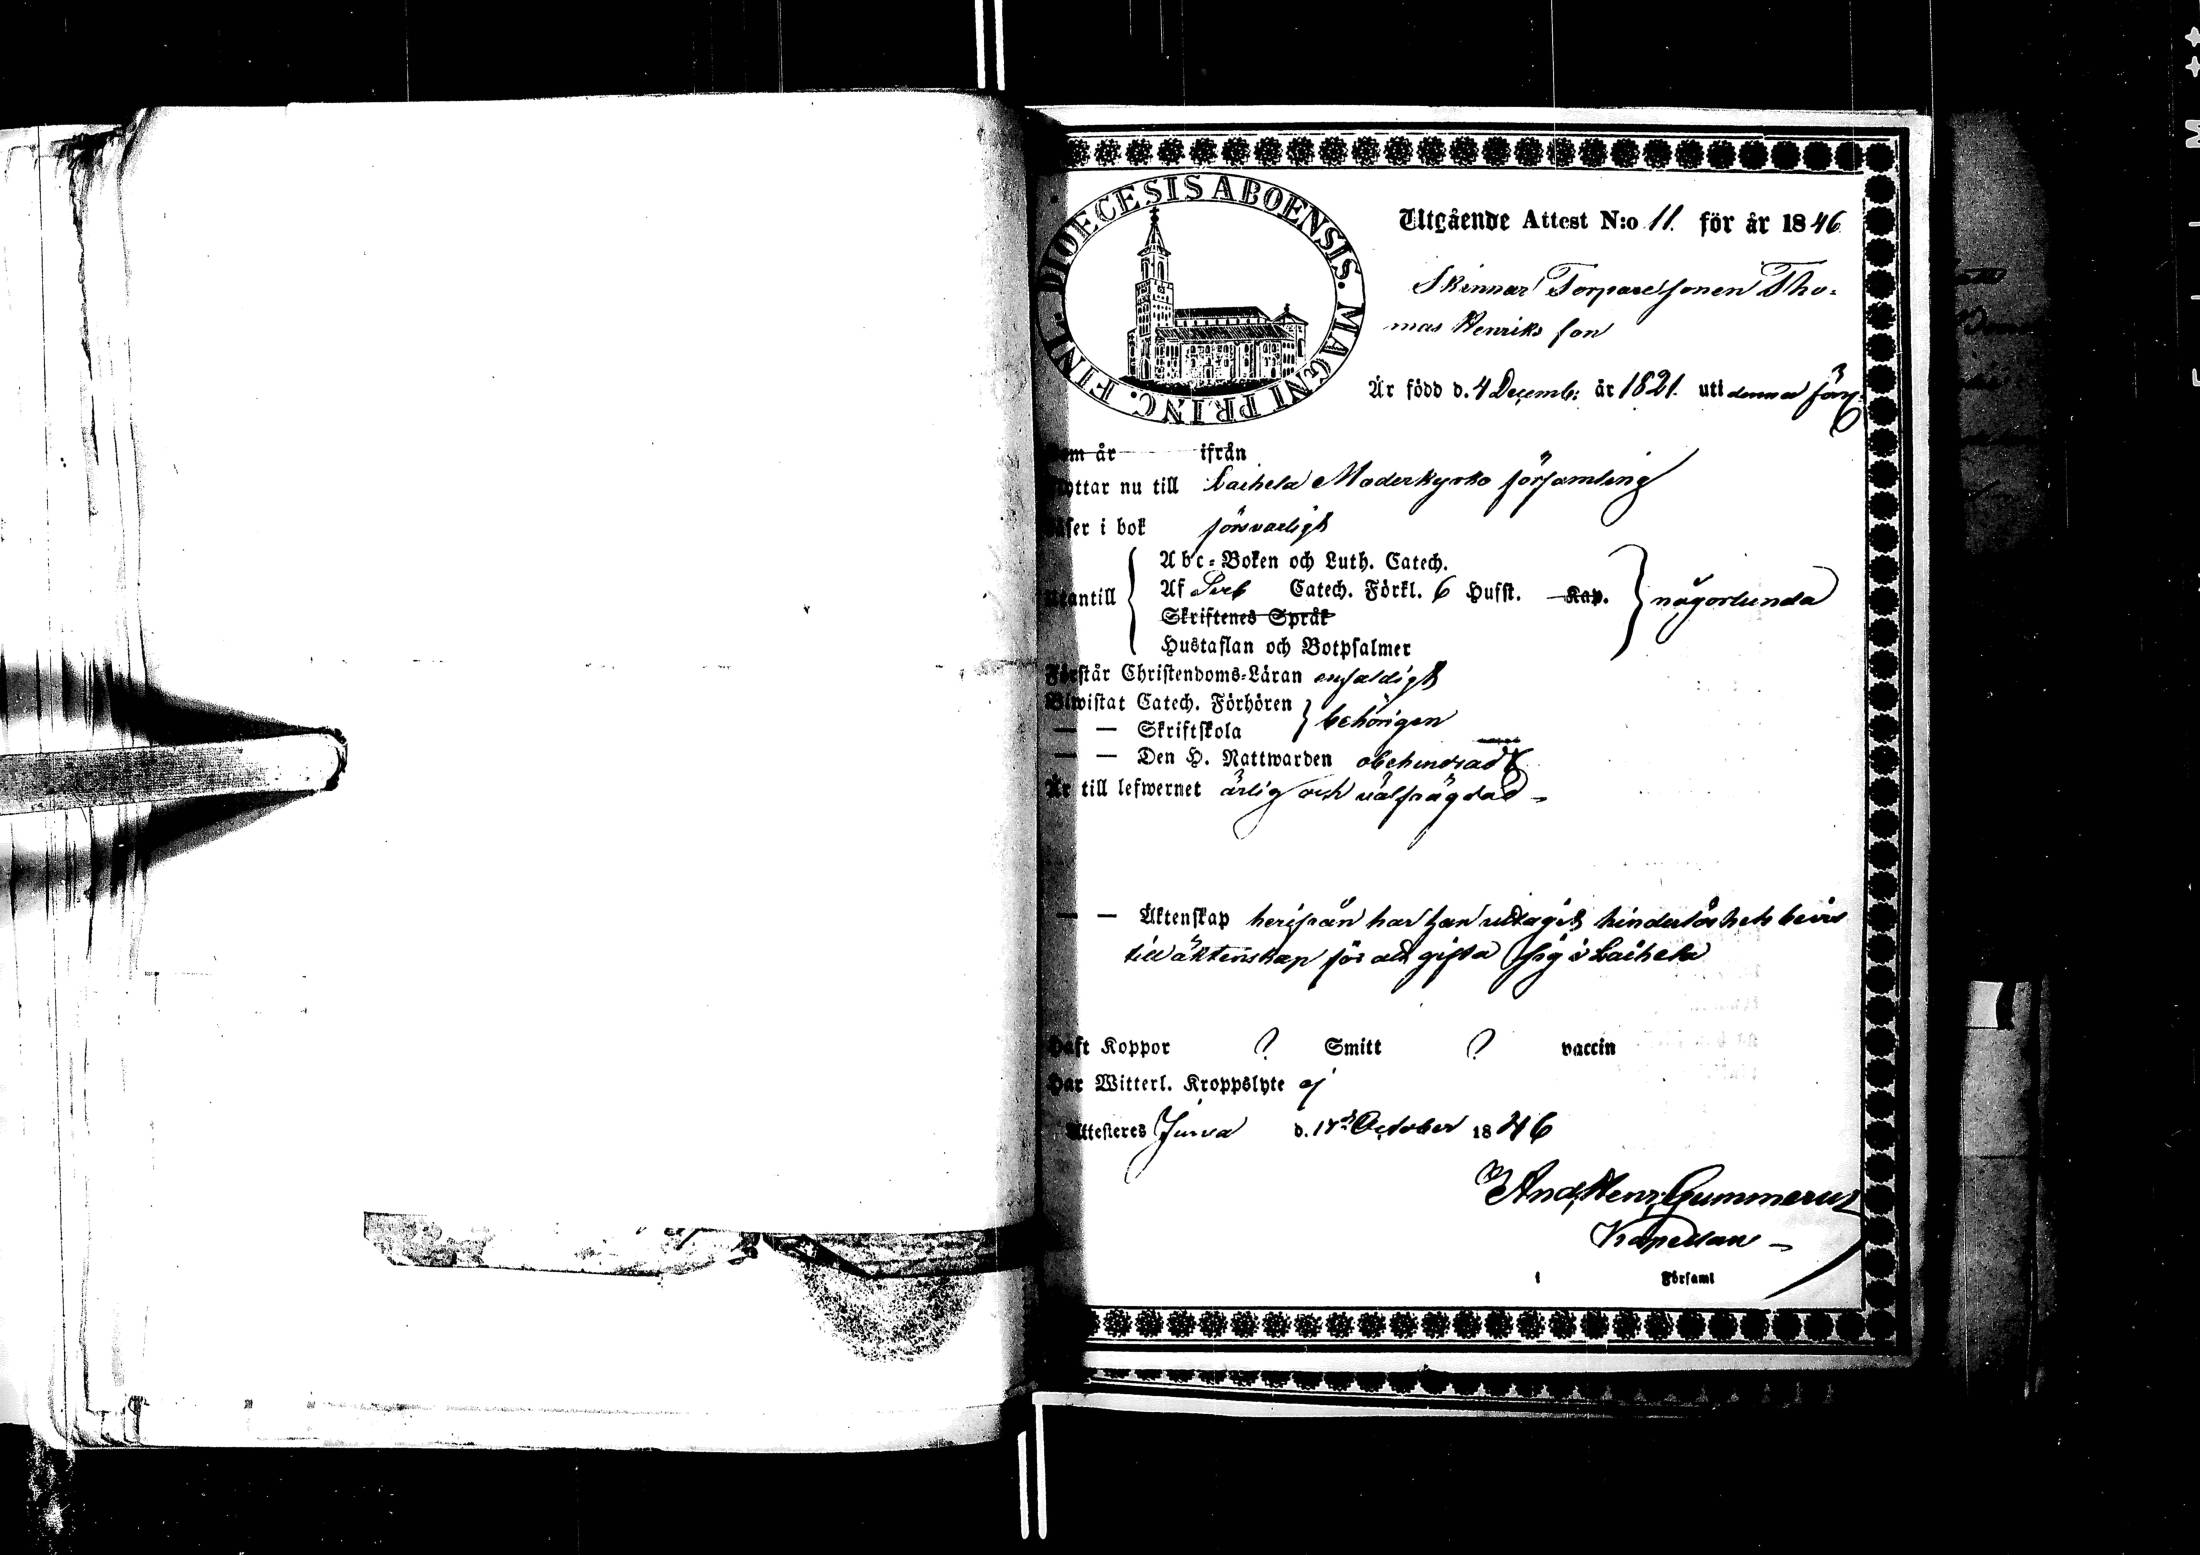 DIOECESIS ABOENSIS. MAGNI PRINC. FINL.
Utgående Attest N:o 11. för år 1846
Skinnar Torparesonen Tho-
mas Henriks son
Är född d. 4 Decemb: år 1821. uti denna förs
Kom år ifrån
Flyttar nu till Laihela Moderkyrko församling
Läser i bok försvarligt
Abc-Boken och Luth. Catech.
Utantill Af Sveb Catech. Förkl. 6 Hufst. Kap. någorlunda
Skriftenes Språk
Hustaflan och Botpsalmer
Förstår Christendoms-Läran enfaldigt
Biwistat Catech. Förhören
— — Skriftskola behörigen
— — Den H. Nattwarden obehindradt
Är till lefwernet ärlig och välfrägdad
— — Äktenskap herifrån har han uttagit hinderlöshets bevis
till äktenskap för att gifta sig i Laihela
Haft Koppor ? Smitt ? vaccin
Har Witterl. Kroppslyte ej
Attesteres Jurva d. October 1846
And. Henr. Gummerus
Kapellan
i Församl